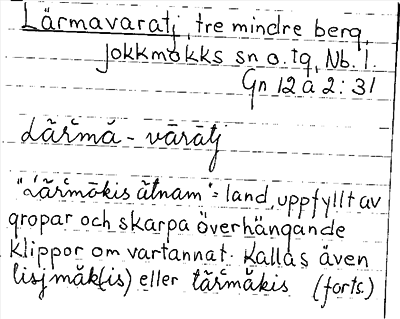 Lärmavaratj, tre mindre berg,
Jokkmokks sn o. tg, Nb. l.
Gn 12 a 2:31
Lārmă - vārātj
"Lārmōkis ătnam" = land, uppfyllt av
gropar och skarpa överhängande
klippor om vartannat. Kallas även
lisjmăk(is) eller tārmăkis (forts.)